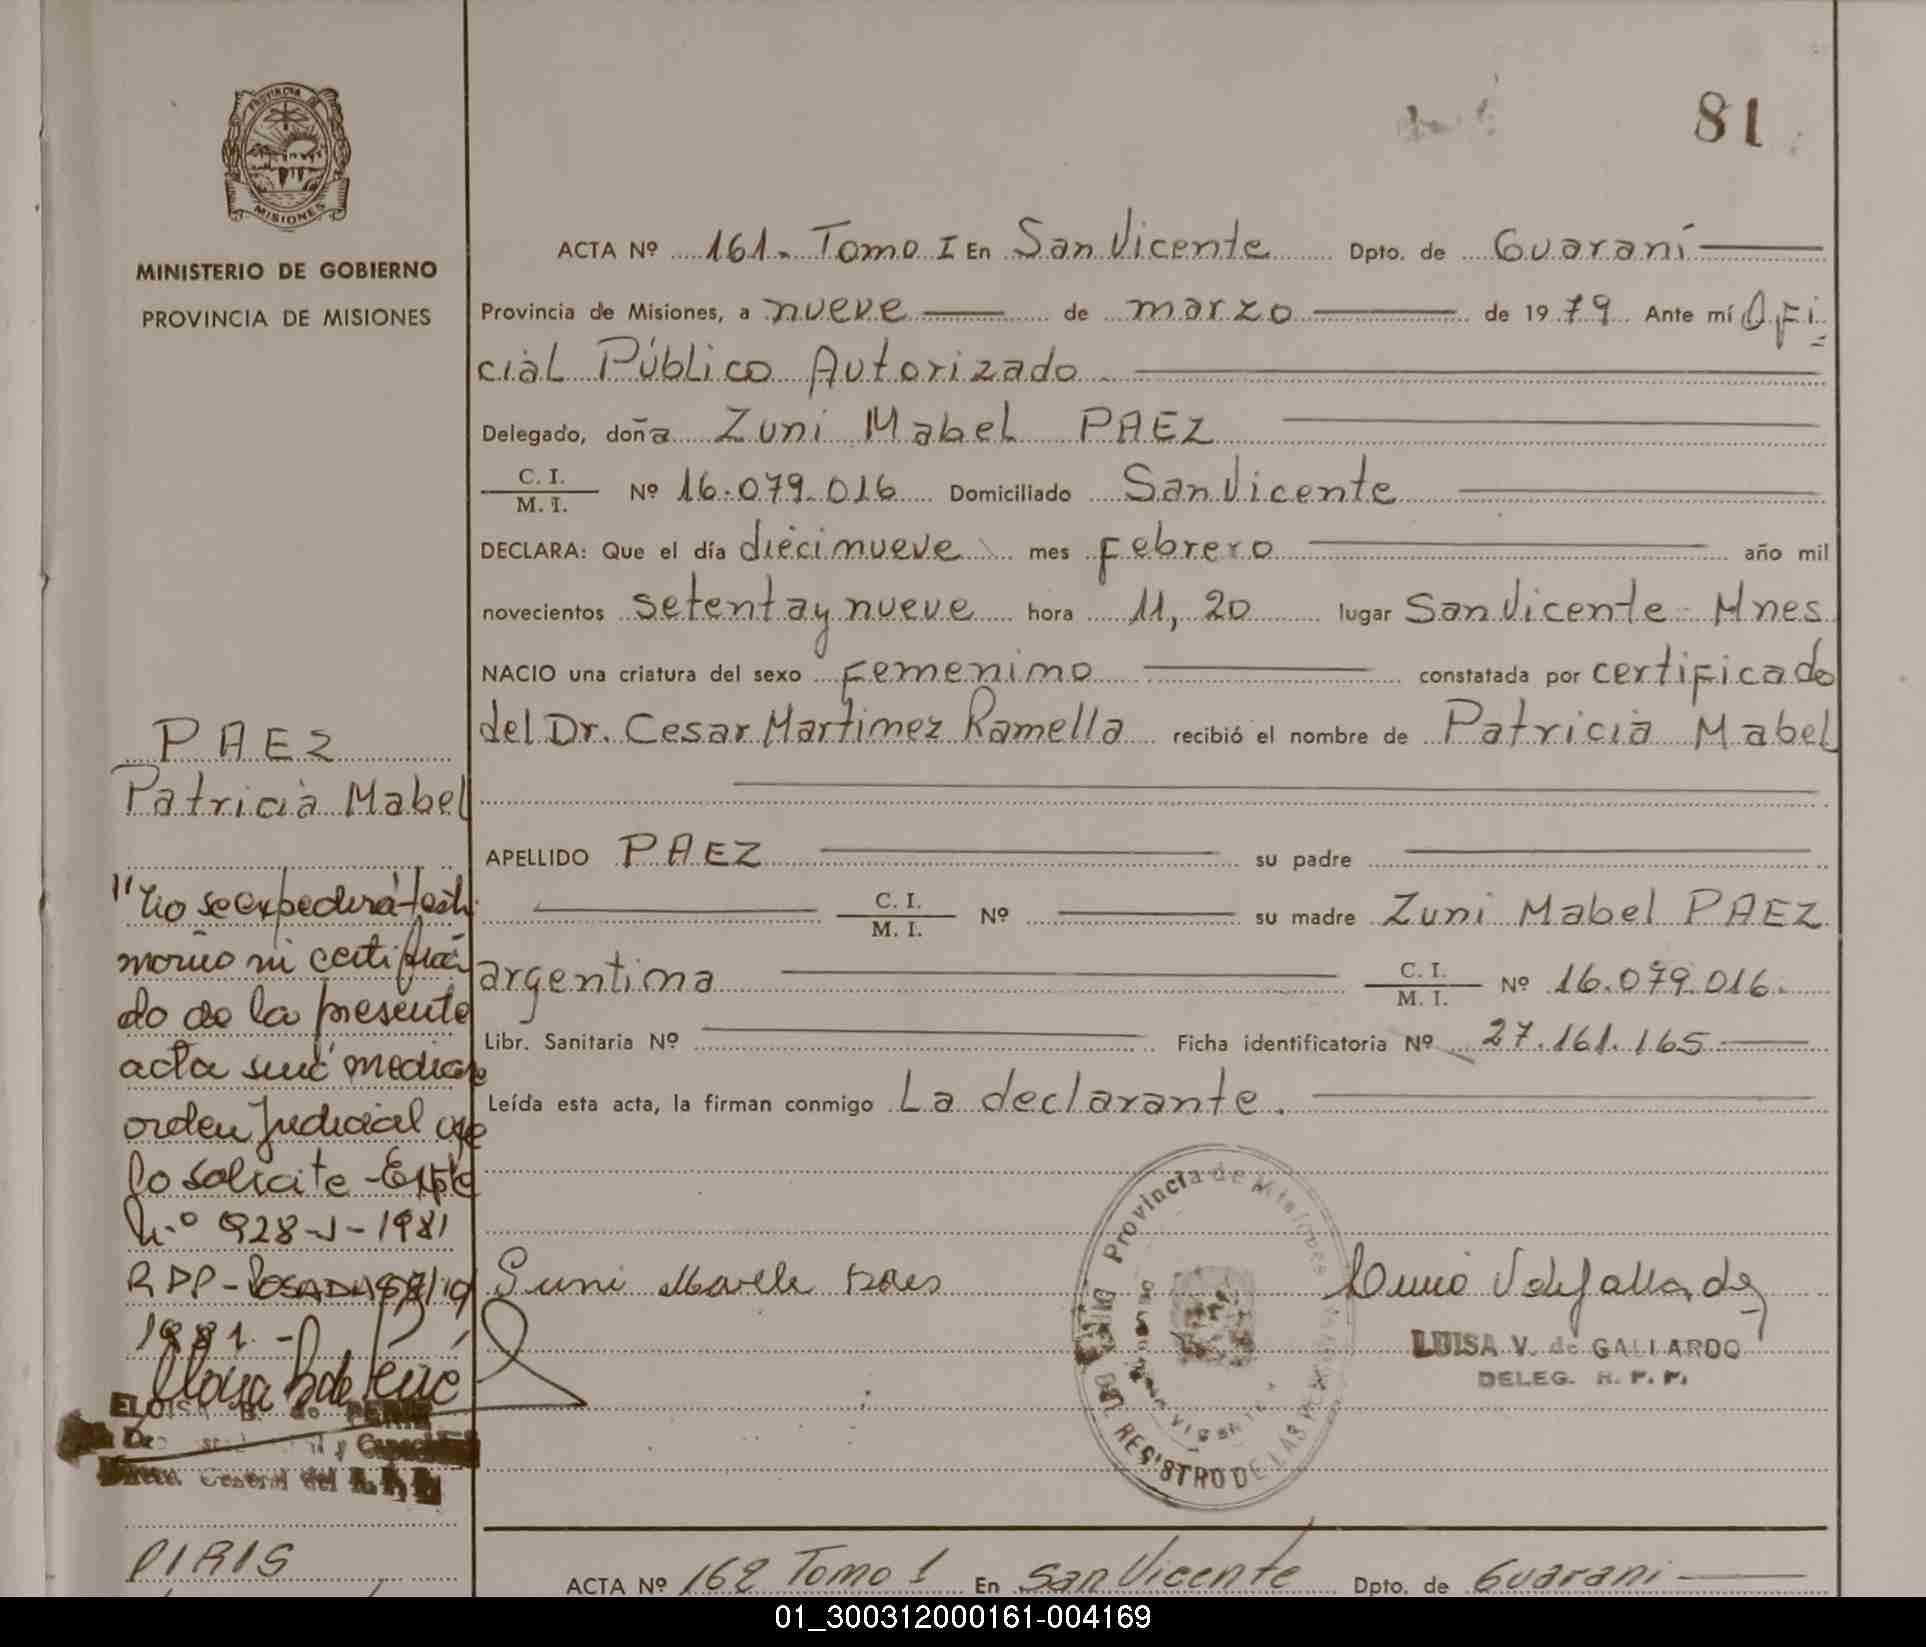 81
PROVINCIA DE
MISIONES
MINISTERIO DE GOBIERNO
PROVINCIA DE MISIONES
ACTA Nº 161. Tomo I En San Vicente Dpto. de Guaraní
Provincia de Misiones, a nueve de marzo de 1979 Ante mí Ofi
cial Público Autorizado
Delegado, doña Zuni Mabel PAEZ
C. I.
M. I. Nº 16.079.016 Domiciliado San Vicente
DECLARA: Que el día diecinueve mes Febrero año mil
novecientos setenta y nueve hora 11,20 lugar San Vicente Mnes
NACIO una criatura del sexo Femenino constatada por certificado
del Dr. Cesar Martinez Ramella recibió el nombre de Patricia Mabel
APELLIDO PAEZ su padre
C. I.
M. I. Nº su madre Zuni Mabel PAEZ
argentina C. I.
M. I. Nº 16.079.016.
Libr. Sanitaria Nº Ficha identificatoria Nº 27.161.165
Leída esta acta, la firman conmigo La declarante.
PAEZ
Patricia Mabel
"No se expedirá testi
monio ni certifica
do de la presente
acta sin medi
orden Judicial que
lo solicite - Expte
N.º 928-J-1981
RPP - POSADAS
1981.-
ELOISA B. de PERIE
General del R.P.P.
Provincia de Misiones
REGISTRO DE LAS PERSONAS
SAN VICENTE
LUISA V. de GALLARDO
DELEG. R. P. P.
PIRIS
ACTA Nº 162 Tomo I En San Vicente Dpto. de Guarani
01_300312000161-004169